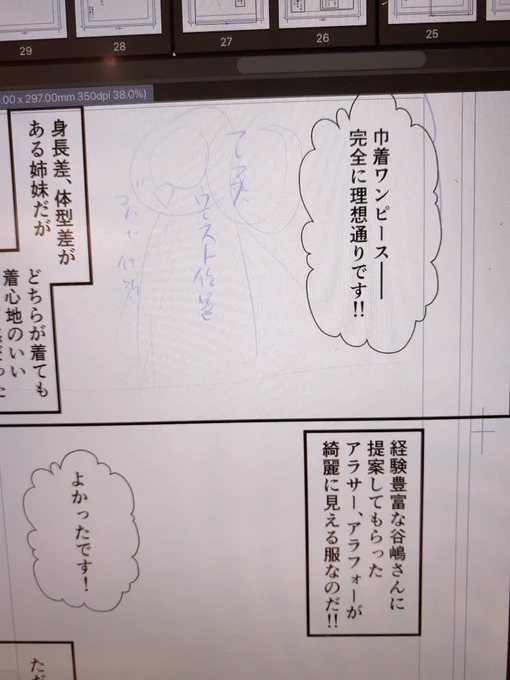 29
28
27
26
25
.00 x 297.00mm 350dpi 38.0%)
巾着ワンピース━━
完全に理想通りです!!
ウエスト位置
身長差、体型差が
ある姉妹だが
どちらが着ても
着心地のいい
経験豊富な谷嶋さんに
提案してもらった
アラサー、アラフォーが
綺麗に見える服なのだ!!
よかったです!
ただ